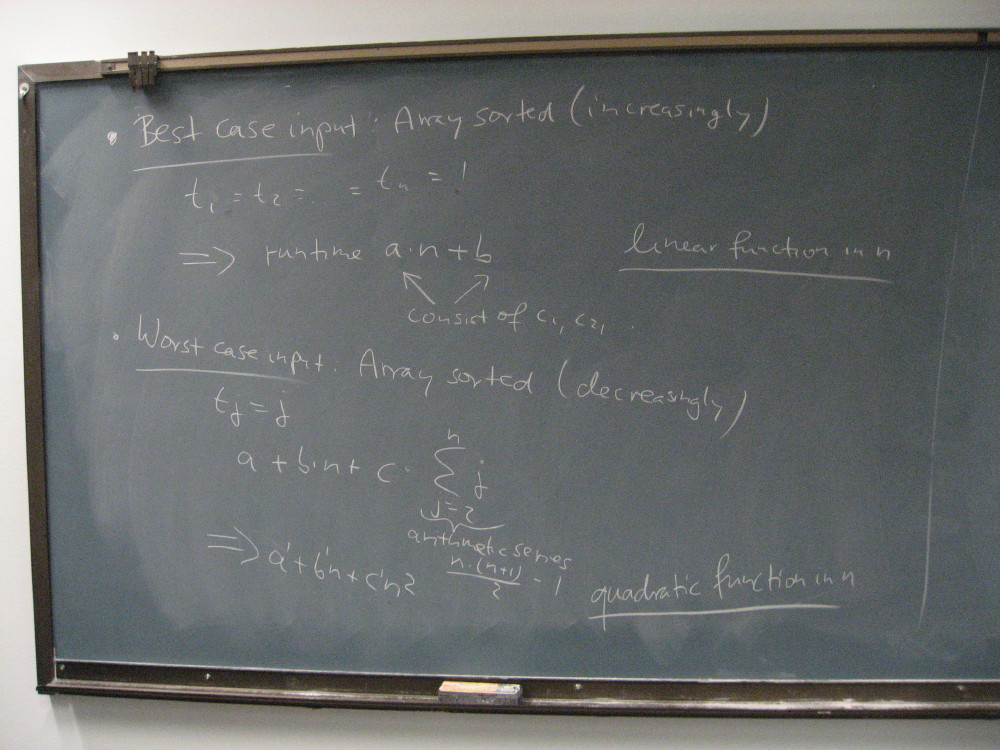 • Best case input: Array sorted (increasingly)
t₁ = t₂ = ... = tₙ = 1
⇒ runtime a·n + b
linear function in n
consist of c₁, c₂, .
• Worst case input: Array sorted (decreasingly)
tⱼ = j
a + b·n + c · ∑ⁿⱼ₌₂ j
arithmetic series
n·(n+1)/2 - 1
⇒ a' + b'n + c'n²
quadratic function in n